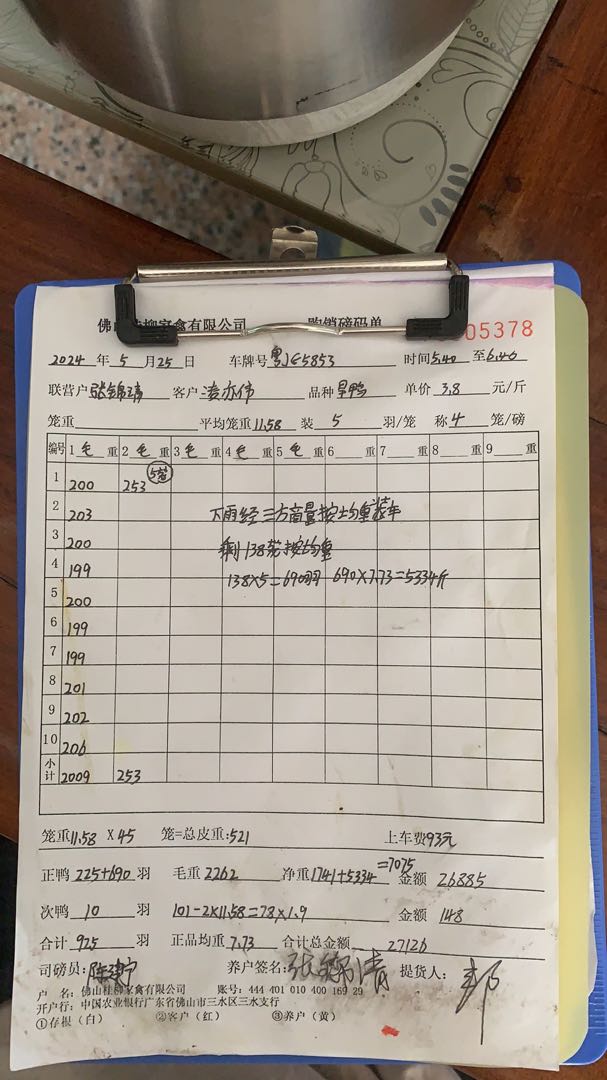 佛山桂柳家禽有限公司 购销磅码单 05378
2024年5月25日 车牌号 粤JE5853 时间5:40至6:40
联营户 张锦清 客户 凌亦伟 品种 旱鸭 单价 3.8 元/斤
笼重 平均笼重11.58 装 5 羽/笼 称 4 笼/磅
编号 1 毛 重 2 毛 重 3 毛 重 4 毛 重 5 毛 重 6 重 7 重 8 重 9 重
1 200 253 5笼
2 203 下雨经三方商量按均重装车
3 200 剩138笼按均重
4 199 138×5=690羽 690×7.73=5334斤
5 200
6 199
7 199
8 201
9 202
10 206
小计 2009 253
笼重11.58×45 笼=总皮重:521 上车费93元
正鸭 225+690 羽 毛重 2262 净重1741+5334=7075 金额 26885
次鸭 10 羽 101-2×11.58=78×1.9 金额 148
合计 925 羽 正品均重 7.73 合计总金额 27126
司磅员: 养户签名: 张锦清 提货人:
户 名: 佛山桂柳家禽有限公司 账号: 444 401 010 400 169 29
开户行: 中国农业银行广东省佛山市三水区三水支行
①存根（白） ②客户（红） ③养户（黄）